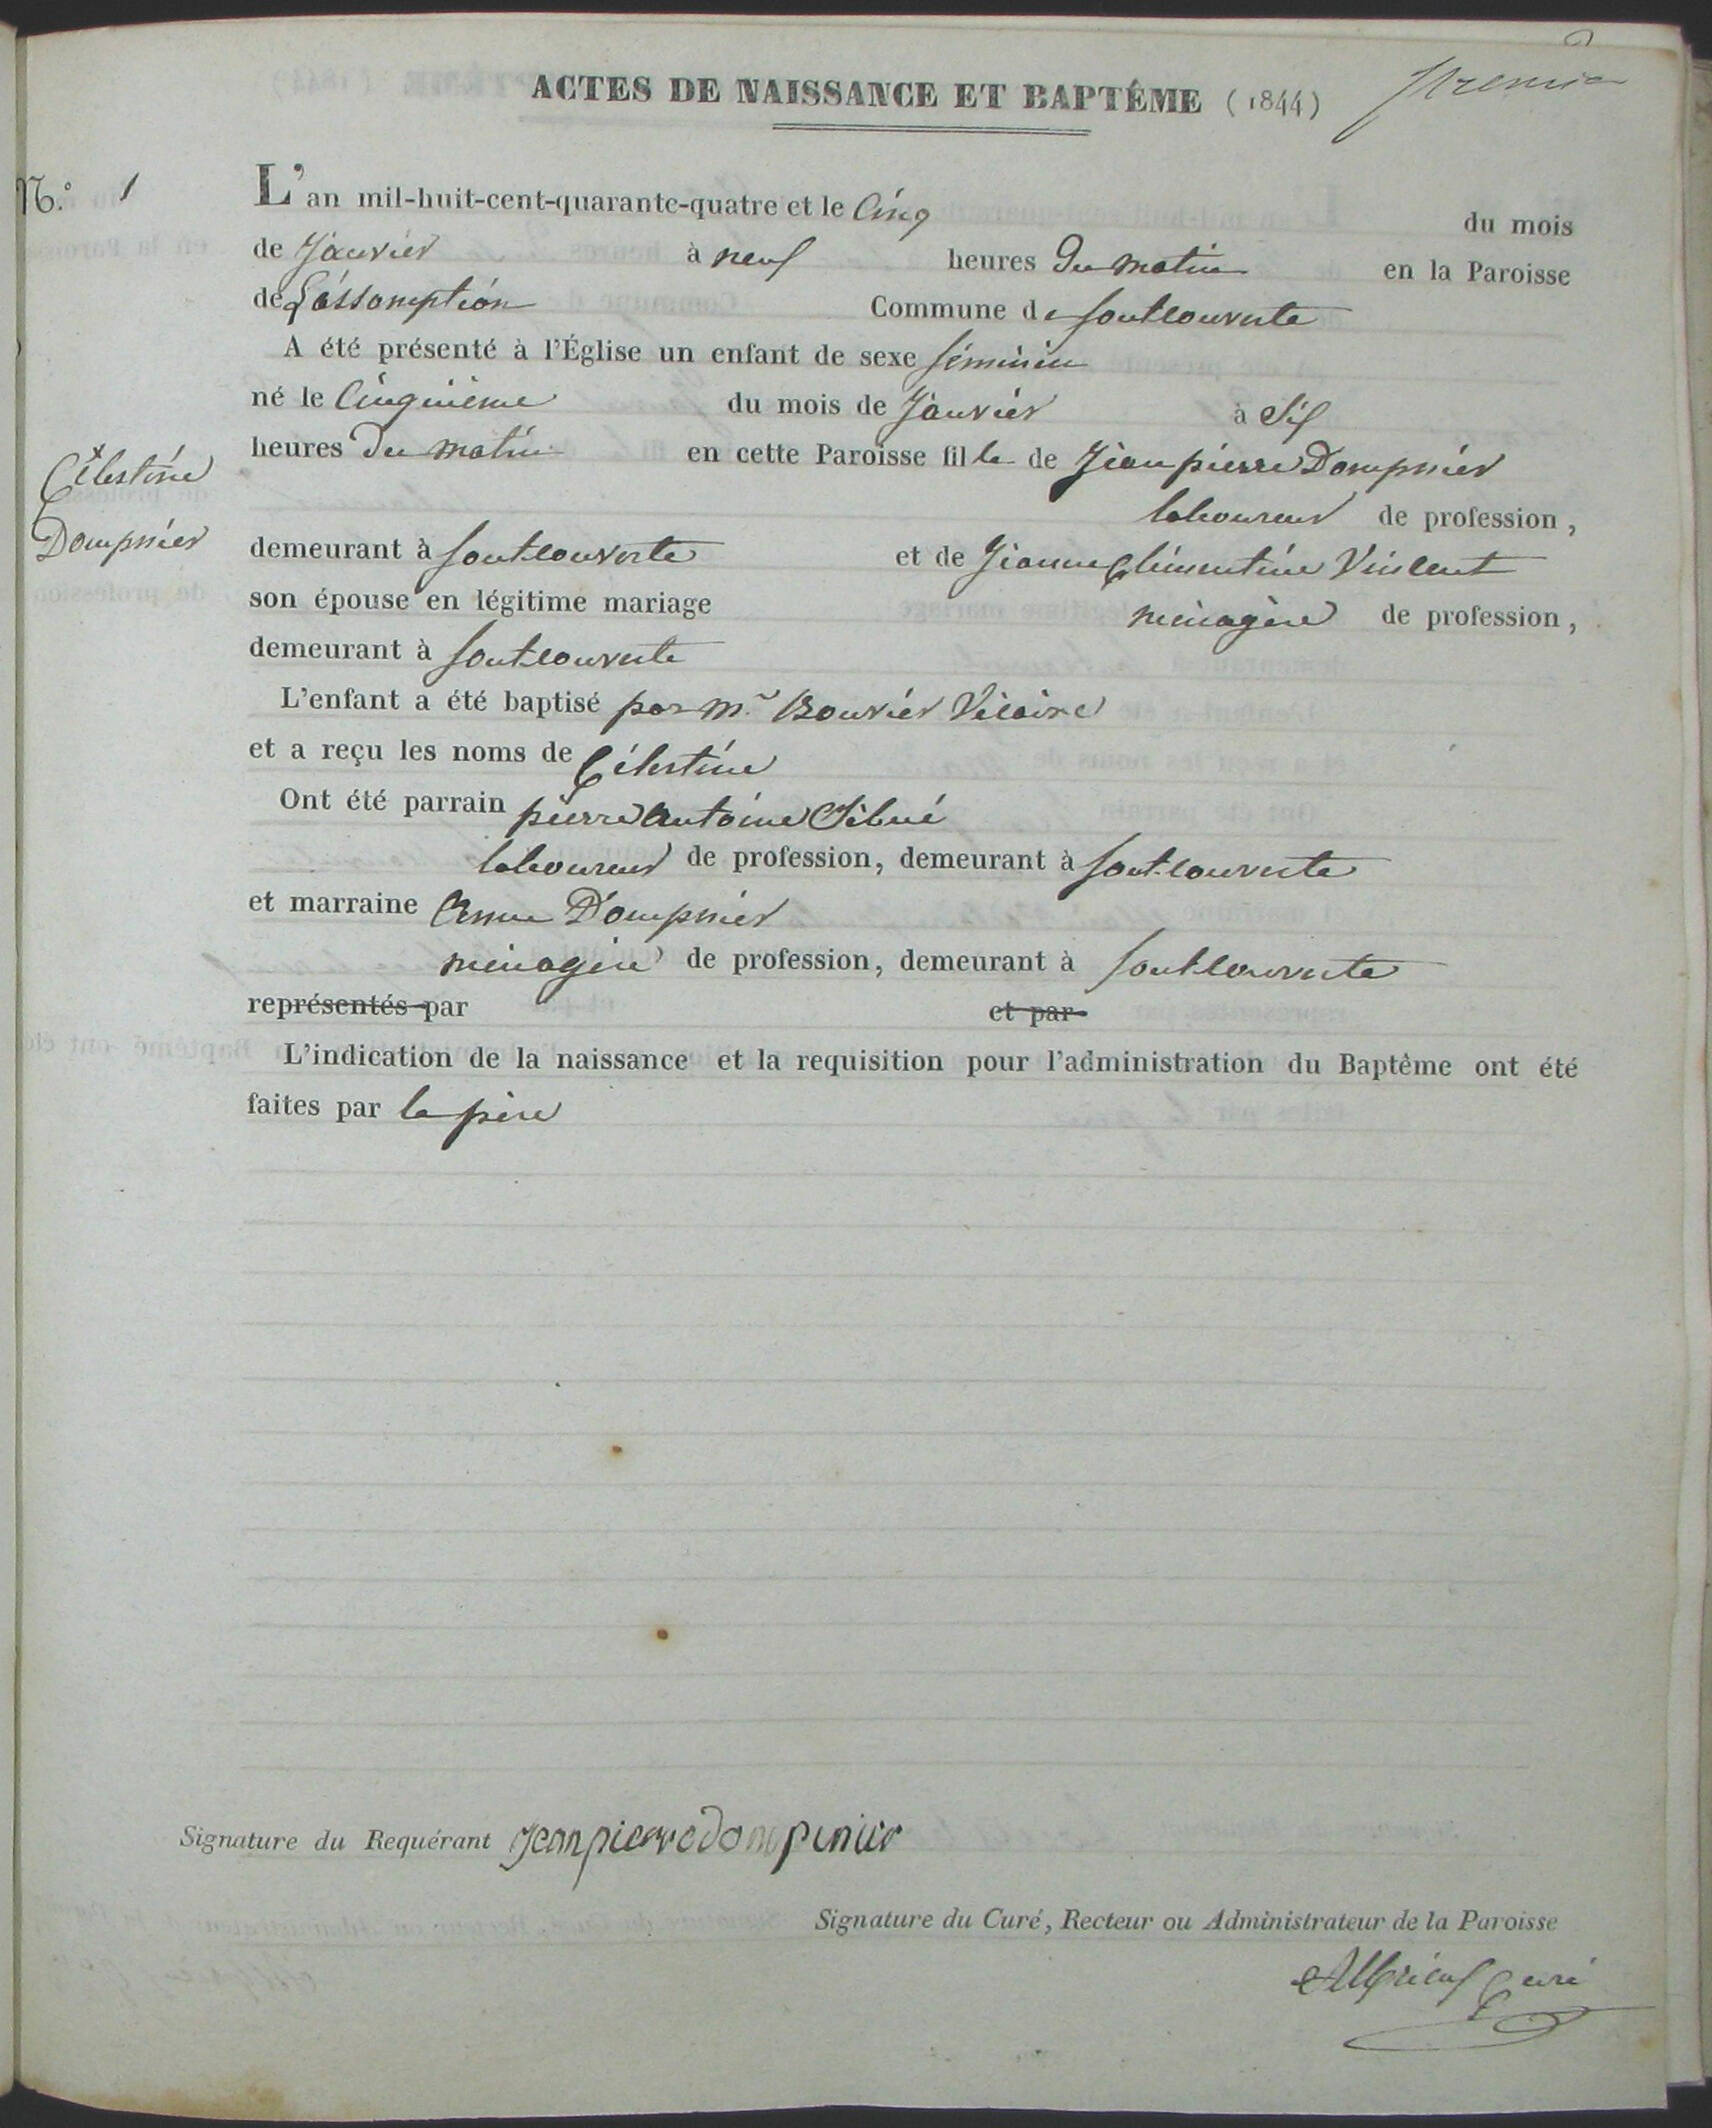 ACTES DE NAISSANCE ET BAPTÊME (1844) premier
N.º 1
L'an mil-huit-cent-quarante-quatre et le Cinq du mois
de Janvier à neuf heures du matin en la Paroisse
de L'assomption Commune de fontcouverte
A été présenté à l'Église un enfant de sexe féminin
né le Cinquième du mois de Janvier à Six
heures du matin en cette Paroisse fille de Jean pierre Dompnier
laboureur de profession,
Célestine
Dompnier
demeurant à fontcouverte et de Jeanne Clémentine Vincent
son épouse en légitime mariage ménagère de profession,
demeurant à fontcouverte
L'enfant a été baptisé par Mr Bouvier Vicaire
et a reçu les noms de Célestine
Ont été parrain pierre Antoine Sibué
laboureur de profession, demeurant à fontcouverte
et marraine Anne Dompnier
ménagère de profession, demeurant à fontcouverte
représentés par et par
L'indication de la naissance et la requisition pour l'administration du Baptême ont été
faites par le père
Signature du Requérant jean pierre dompnier
Signature du Curé, Recteur ou Administrateur de la Paroisse
curé